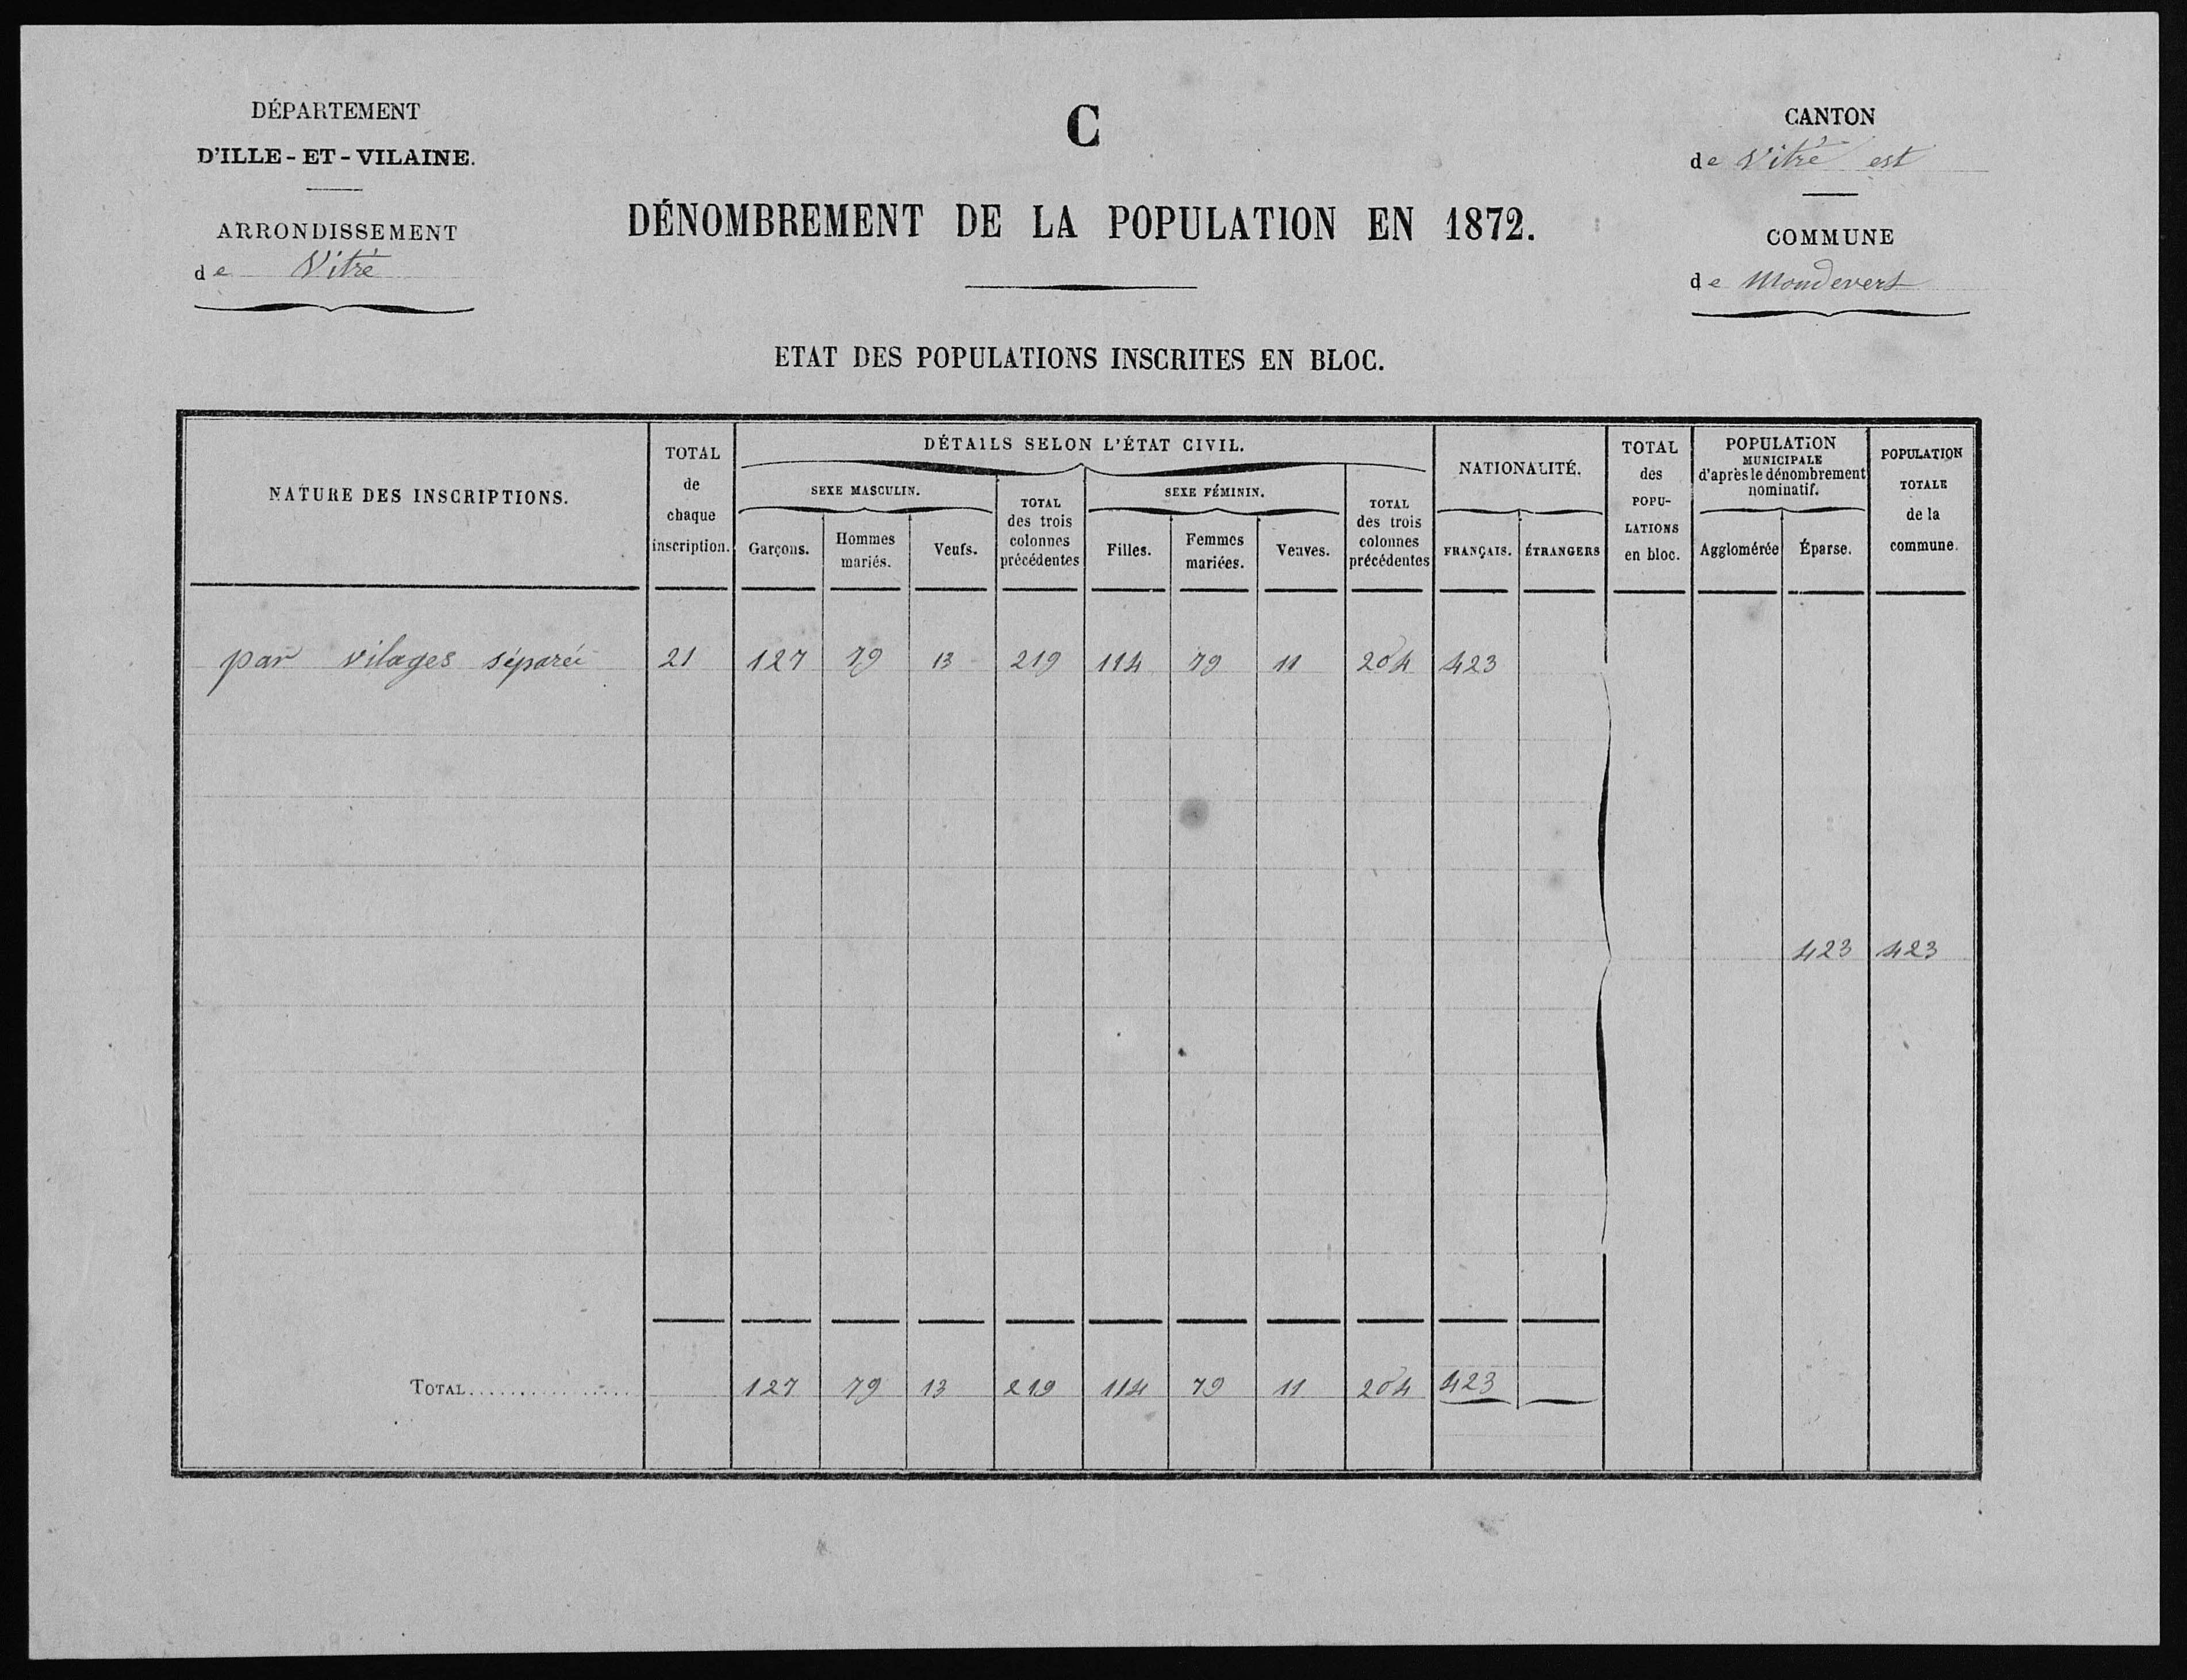 DÉPARTEMENT
D'ILLE-ET-VILAINE.
ARRONDISSEMENT
de Vitré
C
DÉNOMBREMENT DE LA POPULATION EN 1872.
ETAT DES POPULATIONS INSCRITES EN BLOC.
CANTON
de Vitré est
COMMUNE
de Mondevert
NATURE DES INSCRIPTIONS.
TOTAL
de
chaque
inscription.
DÉTAILS SELON L'ÉTAT CIVIL.
SEXE MASCULIN.
Garçons.
Hommes
mariés.
Veufs.
TOTAL
des trois
colonnes
précédentes
SEXE FÉMININ.
Filles.
Femmes
mariées.
Veuves.
TOTAL
des trois
colonnes
précédentes
NATIONALITÉ.
FRANÇAIS.
ÉTRANGERS
TOTAL
des
POPU-
LATIONS
en bloc.
POPULATION
MUNICIPALE
d'après le dénombrement
nominatif.
Agglomérée
Éparse.
POPULATION
TOTALE
de la
commune.
par vilages séparée 21 127 79 13 219 114 79 11 204 423
423 423
TOTAL................ 127 79 13 219 114 79 11 204 423